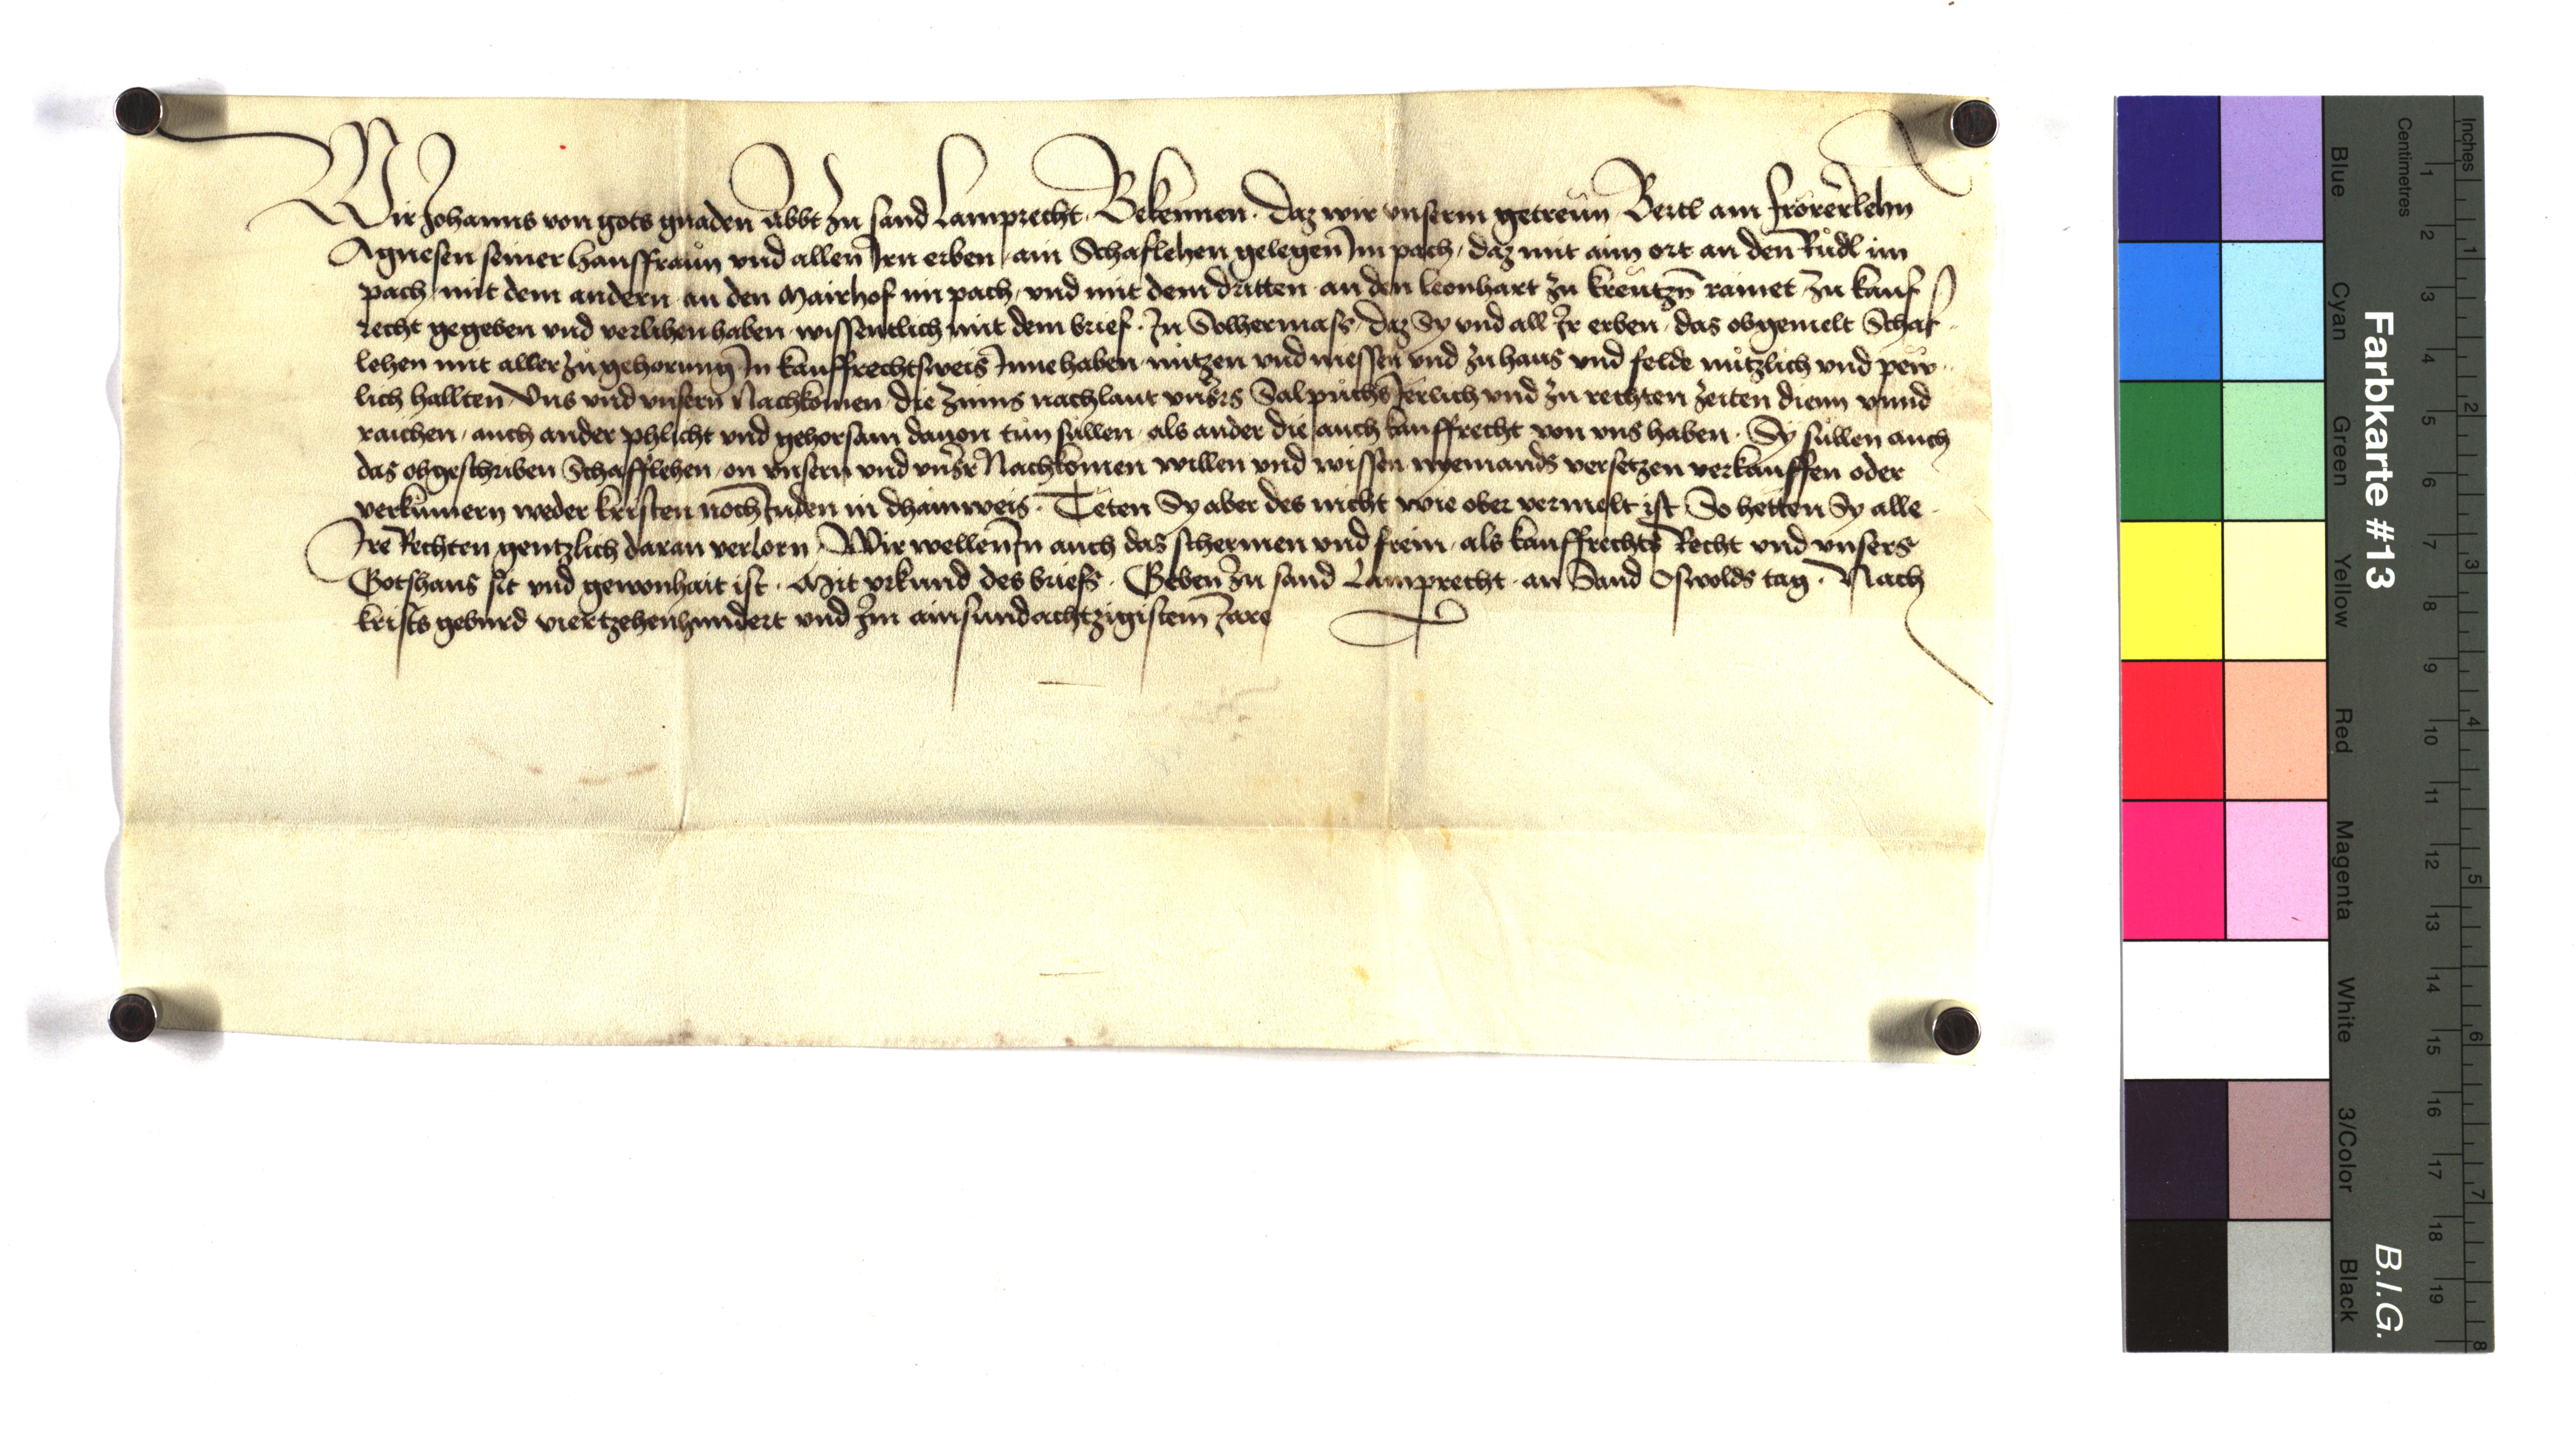 Wir Johanns von gots gnaden abbt zu sand Lamprecht. Bekennen. daz wir vnserm getreůn Bertl am frörerlehn
Agnesen seiner hausfraůn vnd allen Irn erben ain Schaflehen gelegen Im pach, daz mit aim ort an den Růdl im
pach, mit dem andern an den Mairhof im pach, vnd mit dem dritten an den leonhart zu kreůtzn̄ rainet, zu kauf
recht gegeben vnd verlihen haben wissentlich mit dem brief. In Solhermass, daz Sy vnd all Ir erben das obgemelt Schaf
lehen mit aller zugehorung In kauffrechtsweis Innehaben nutzen vnd niessen vnd zu haus vnd felde nůtzlich vnd pew
lich hallten Vns vnd vnsern Nachkomen die zinns nachlaut vnsrs Salpuchs Jerlich vnd zu rechten zeiten dienn vnnd
raichen, auch ander phlicht vnd gehorsam dauon tůn sůllen als ander die auch kauffrecht von vns haben. Sy sůllen auch
das obgeschriben Schafflehen on vnsern vnd vnsr Nachkomen willen vnd wissen nyemands versetzen verkauffen oder
verkůmern weder kristen noch Juden in dhainweis. Teten Sy aber des nicht wie ober vermelt ist So hetten Sy alle
Ire Rechten gentzlich daran verlorn, Wir wellen In auch das schermen vnd frein als kauffrechts Recht vnd vnsers
Gotshaus sit vnd gewonhait ist. Mit vrkund des briefs. Geben zu sand Lamprecht an Sand Oswolds tag. Nach
krists geburd viertzehenhundert vnd Im ainsundachtzigistem Jare
Farbkarte #13
B.I.G.
Centimetres
Inches
Blue
Cyan
Green
Yellow
Red
Magenta
White
3/Color
Black
1 2 3 4 5 6 7 8 9 10 11 12 13 14 15 16 17 18 19
1 2 3 4 5 6 7 8